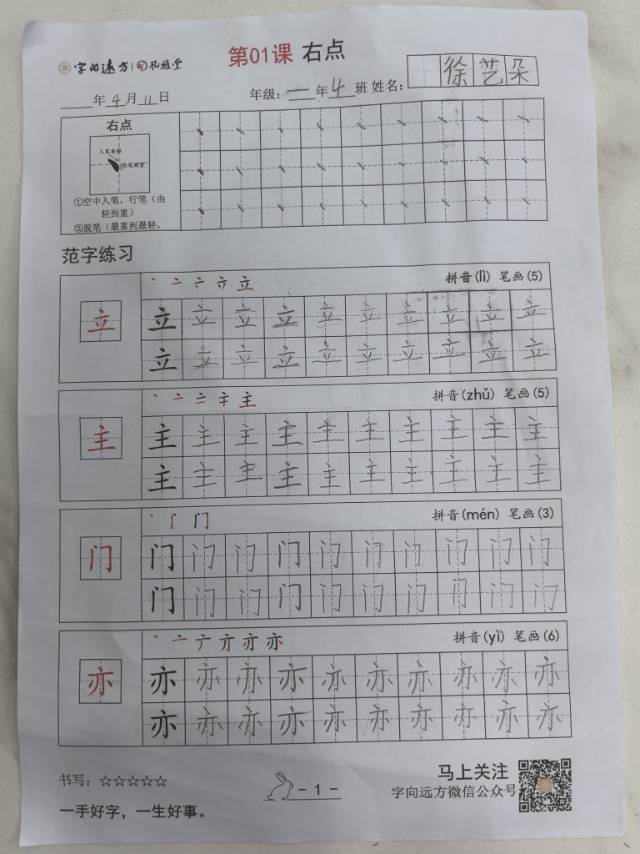 字向远方 孔雅堂
第01课 右点
年4月11日
年级：二年4班 姓名：徐艺朵
右点
①空中入笔，行笔（由
轻到重）
②脱笔（最重到最轻，
范字练习
拼音(lì) 笔画(5)
立 立立立立立立立立立立
立立立立立立立立立立
拼音(zhǔ) 笔画(5)
主 主主主主主主主主主主
主主主主主主主主主主
拼音(mén) 笔画(3)
门 门门门门门门门门门门
门门门门门门门门门门
拼音(yì) 笔画(6)
亦 亦亦亦亦亦亦亦亦亦亦
亦亦亦亦亦亦亦亦亦亦
书写：☆☆☆☆☆
一手好字，一生好事。
- 1 -
马上关注
字向远方微信公众号